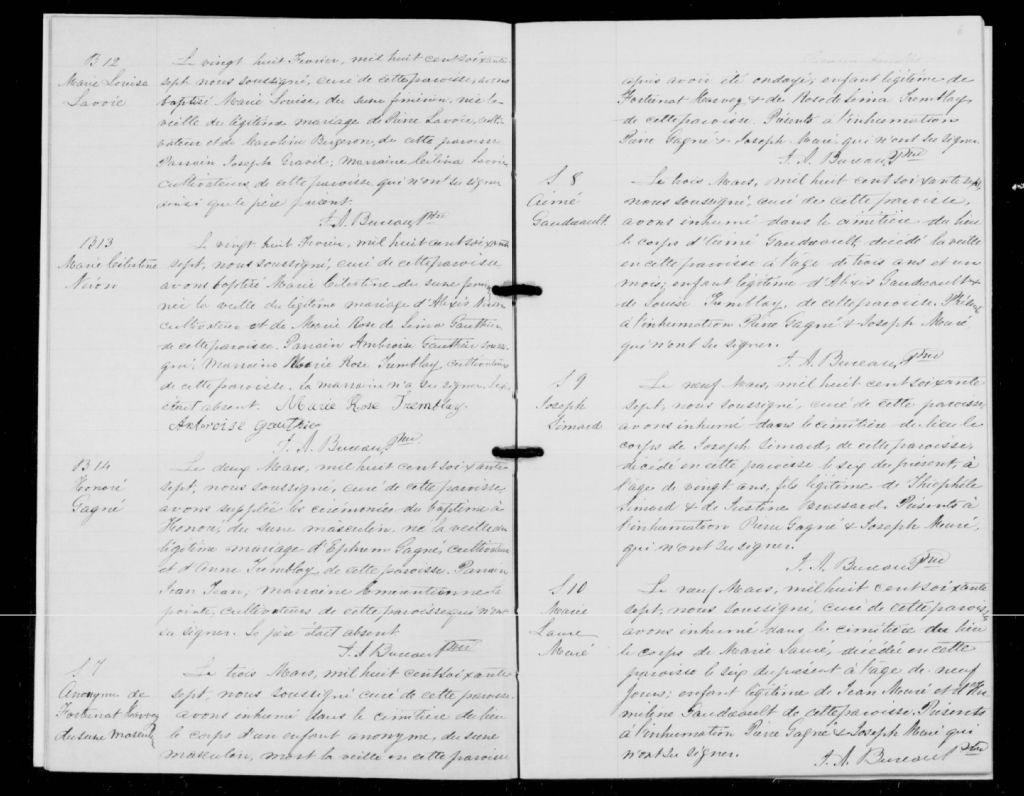 B 12
Marie Louise
Lavoie
Le vingt huit Fevrier, mil huit cent soixante
sept, nous soussigné, curé de cette paroisse, avons
baptisé Marie Louise, du sexe féminin, née la
veille du légitime mariage de Pierre Lavoie, culti-
vateur et de Caroline Bergeron, de cette paroisse
Parrain Joseph Gravel; marraine Célina Lavoie
cultivateurs de cette paroisse qui n'ont su signer
ainsi que le père présent.
F. A. Bureau, Ptre
B 13
Marie Célestine
Niron
Le vingt huit Fevrier, mil huit cent soixante
sept, nous soussigné, curé de cette paroisse
avons baptisé Marie Célestine du sexe fémi-
née la veille du légitime mariage d'Alexis
cultivateur et de Marie Rose de Lima Gauthier
de cette paroisse. Parrain Ambroise Gauthier sous-
signé; Marraine Marie Rose Tremblay, cultivateurs
de cette paroisse. La marraine n'a su signer. Le
était absent. Marie Rose Tremblay.
Ambroise Gauthier
F. A. Bureau, Ptre
B 14
Honoré
Gagné
Le deux Mars, mil huit cent soixante
sept, nous soussigné, curé de cette paroisse,
avons supplée les cérémonies du baptême à
Honoré, du sexe masculin, né la veille du
légitime mariage d'Ephrem Gagné, cultivateur
et d'Anne Tremblay de cette paroisse. Parrain
Jean Jean; marraine
pointe, cultivateurs de cette paroisse qui n'ont
su signer. Le père était absent
F. A. Bureau Ptre
S 7
Anonyme de
Fortunat Harvey
du sexe mascul
Le trois Mars, mil huit cent soixante
sept, nous soussigné curé de cette paroisse
avons inhumé dans le cimetière du lieu
le corps d'un enfant anonyme, du sexe
masculin, mort la veille en cette paroisse
après avoir été ondoyé, enfant légitime de
Fortunat Harvey & de Rose de Lima Tremblay
de cette paroisse. Présents à l'inhumation
Pierre Gagné & Joseph Meuré, qui n'ont su signer.
F. A. Bureau, Ptre
S 8
Aimé
Gaudreault.
Le trois Mars, mil huit cent soixante sept,
nous soussigné, curé de cette paroisse,
avons inhumé dans le cimétière du lieu
le corps d'Aimé Gaudreault décédé la veille
en cette paroisse à l'âge de trois ans et un
mois; enfant légitime d'Alexis Gaudreault &
de Louise Tremblay, de cette paroisse. Présents
à l'inhumation Pierre Gagné & Joseph Meuré,
qui n'ont su signer.
F. A. Bureau, Ptre
S 9
Joseph
Simard
Le neuf Mars, mil huit cent soixante
sept, nous soussigné, curé de cette paroisse,
avons inhumé dans le cimitière du lieu le
corps de Joseph Simard, de cette paroisse,
décédé en cette paroisse le six du présent, à
l'âge de vingt ans, fils légitime de Théophile
Simard & de Justine Brassard. Présents à
l'inhumation Pierre Gagné & Joseph Meuré,
qui n'ont su signer.
F. A. Bureau Ptre
S 10
Marie
Laure
Meuré
Le neuf Mars, mil huit cent soixante
sept, nous soussigné, curé de cette paroisse
avons inhumé dans le cimitière du lieu
le corps de Marie Laure, décédée en cette
paroisse le six du présent à l'âge de neuf
jours; enfant légitime de Jean Meuré et d'He-
miline Gaudreault de cette paroisse. Présents
à l'inhumation Pierre Gagné & Joseph Meuré qui
n'ont su signer.
F. A. Bureau Ptre